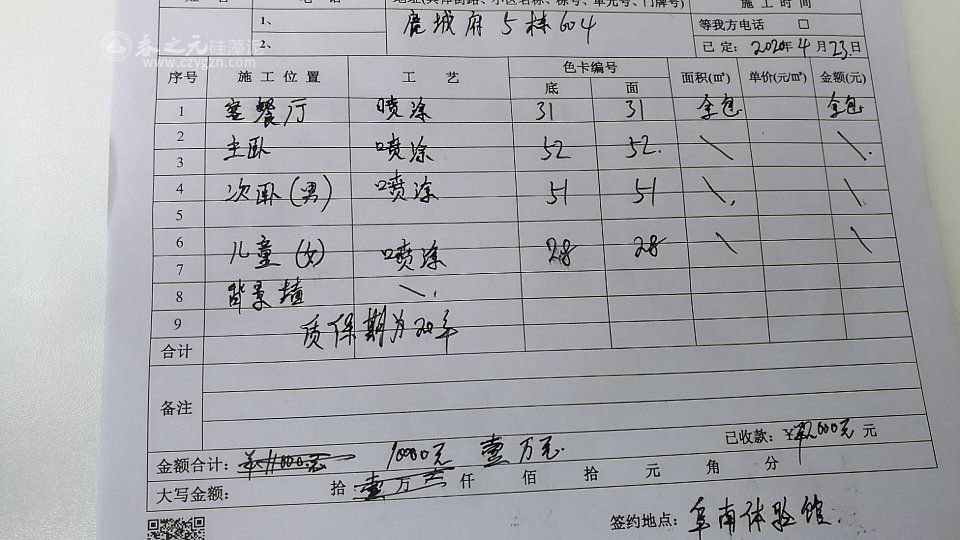 姓名 电话 地址(具体街路、小区名称、栋号、单元号、门牌号) 施工时间
1、 鹿城府5栋604 等我方电话 □
2、 已定: 2020年4月23日
春之元硅藻泥
www.czygzn.com
序号 施工位置 工艺 色卡编号 面积(㎡) 单价(元/㎡) 金额(元)
底 面
1 客餐厅 喷涂 31 31 全包 全包
2 主卧 喷涂 52 52. \ \.
3
4 次卧(男) 喷涂 51 51 \. \
5
6 儿童(女) 喷涂 28 28 \ \
7
8 背景墙 \.
9 质保期为20年
合计
备注
金额合计: 10000元 壹万元. 已收款: ¥2000元 元
大写金额: 拾 壹万 仟 佰 拾 元 角 分
签约地点: 阜南体验馆.